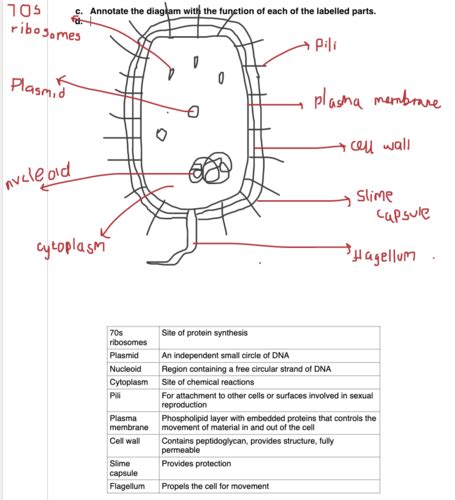 c. Annotate the diagram with the function of each of the labelled parts.
d.
70s
ribosomes
Pili
Plasmid
plasma membrane
cell wall
nucleoid
Slime
capsule
cytoplasm
flagellum.
70s ribosomes Site of protein synthesis
Plasmid An independent small circle of DNA
Nucleoid Region containing a free circular strand of DNA
Cytoplasm Site of chemical reactions
Pili For attachment to other cells or surfaces involved in sexual
reproduction
Plasma membrane Phospholipid layer with embedded proteins that controls the
movement of material in and out of the cell
Cell wall Contains peptidoglycan, provides structure, fully
permeable
Slime capsule Provides protection
Flagellum Propels the cell for movement